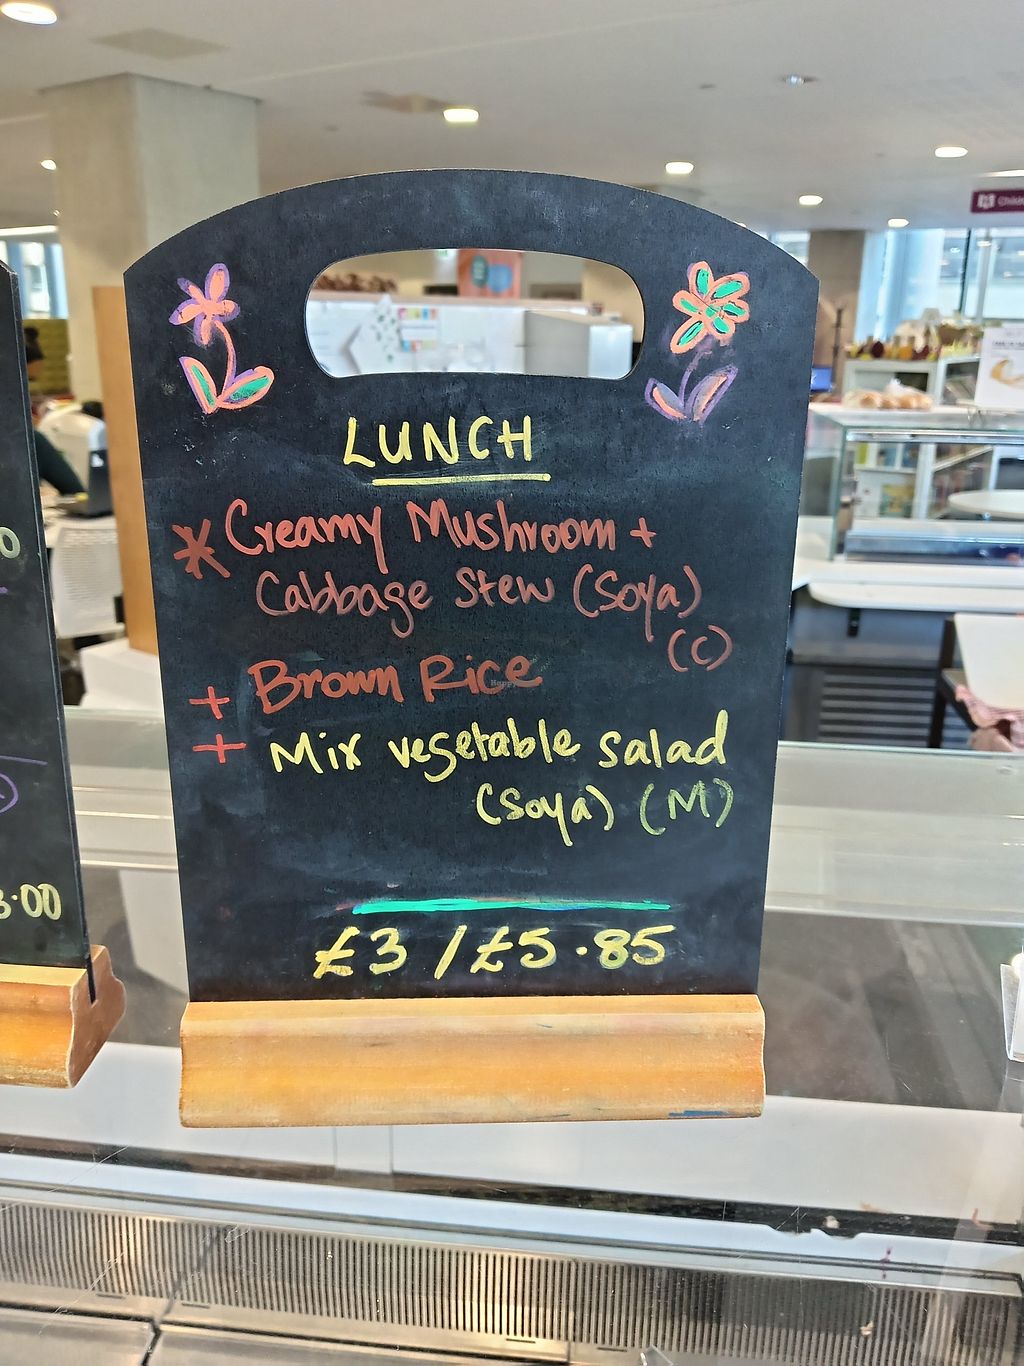 LUNCH
* Creamy Mushroom +
Cabbage Stew (Soya)
(C)
+ Brown Rice
+ Mix vegetable salad
(Soya) (M)
£3 / £5.85
3.00